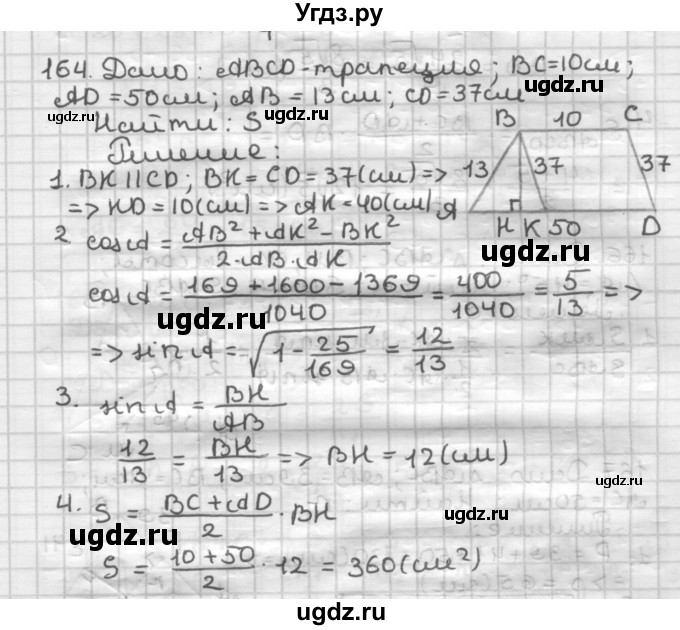 Угдз.ру
164. Дано: ABCD-трапеция; BC=10см;
AD=50см; AB=13см; CD=37см
ugdz.ru ugdz.ru
Найти: S
Решение:
B 10 C
1. BK||CD; BK=CD=37(см)=>
13 37 37
=> KD=10(см)=> AK=40(см)
A H K 50 D
2. cosA = (AB²+AK²-BK²)/(2·AB·AK)
ugdz.ru
cosA = (169+1600-1369)/1040 = 400/1040 = 5/13 =>
ugdz.ru ugdz.ru
=> sinA = √(1-25/169) = 12/13
3. sinA = BH/AB
12/13 = BH/13 => BH=12(см)
ugdz.ru
4. S = (BC+AD)/2 · BH
ugdz.ru ugdz.ru
S = (10+50)/2 · 12 = 360(см²)
ugdz.ru ugdz.ru